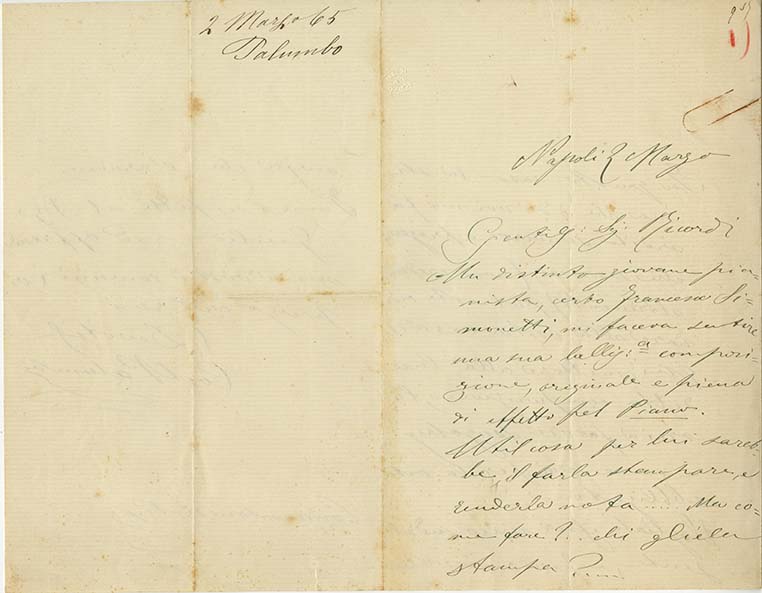 2 Marzo 65
Palumbo
Napoli 2 Marzo
Gentilis: Sig: Ricordi
Un distinto giovane pia-
nista, certo Francesco Si-
monetti, mi faceva sentire
una sua bellis:ª composi-
zione, originale e piena
di effetto pel Piano.
Util cosa per lui sareb-
be, il farla stampare, e
renderla nota..... Ma co-
me fare?.. chi gliela
stampa?....